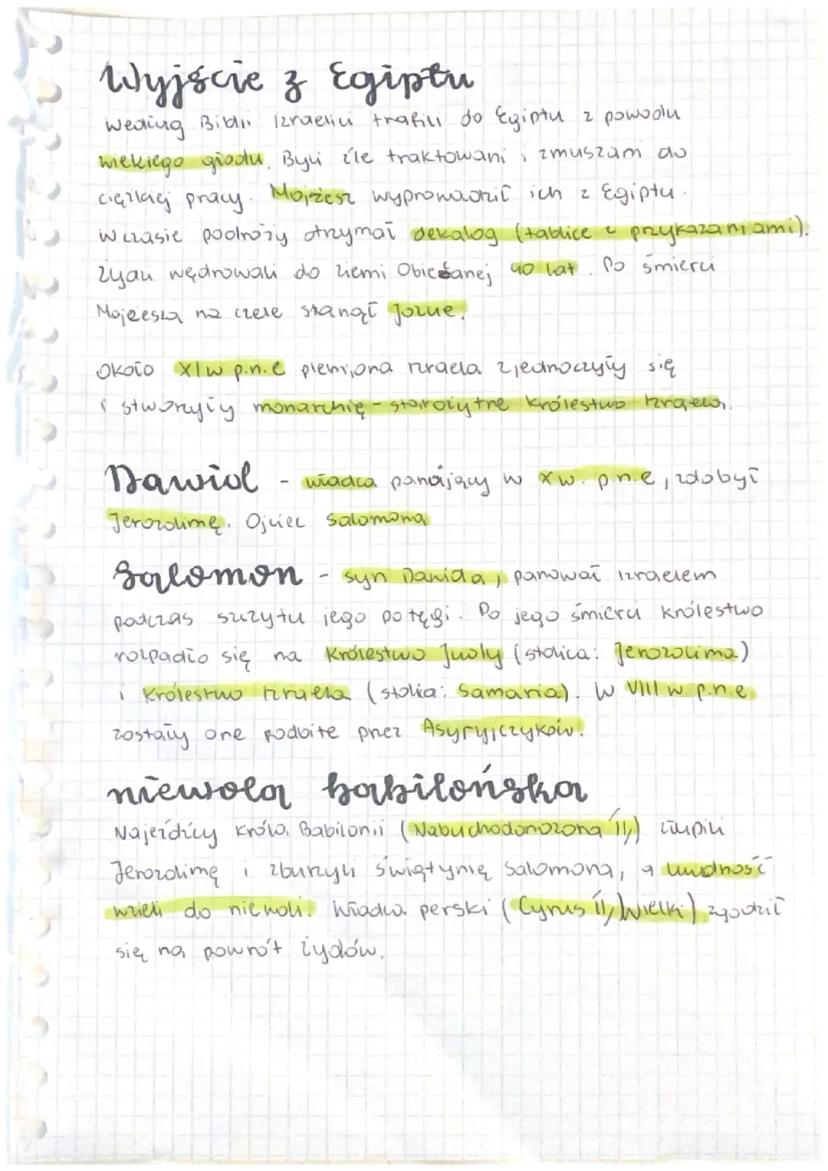 Wyjście z Egiptu
według Biblii Izraelici trafili do Egiptu z powodu
wielkiego głodu. Byli źle traktowani i zmuszani do
ciężkiej pracy. Mojżesz wyprowadził ich z Egiptu.
W czasie podróży otrzymał dekalog (tablice z przykazaniami).
Żydzi wędrowali do ziemi Obiecanej 40 lat. Po śmierci
Mojżesza na czele stanął Jozue.
Około XI w p.n.e plemiona Izraela zjednoczyły się
i stworzyły monarchię - starożytne królestwo Izraela.
Dawid - władca panujący w X w. p.n.e, zdobył
Jerozolimę. Ojciec Salomona
Salomon - syn Dawida, panował Izraelem
podczas szczytu jego potęgi. Po jego śmierci królestwo
rozpadło się na Królestwo Judy (stolica: Jerozolima)
i Królestwo Izraela (stolia: Samaria). W VIII w p.n.e
zostały one podbite przez Asyryjczyków.
niewola babilońska
Najeźdźcy króla Babilonii (Nabuchodonozora II) złupili
Jerozolimę i zburzyli świątynię Salomona, a ludność
wzieli do niewoli. Władca perski (Cyrus II Wielki) zgodził
się na powrót żydów.